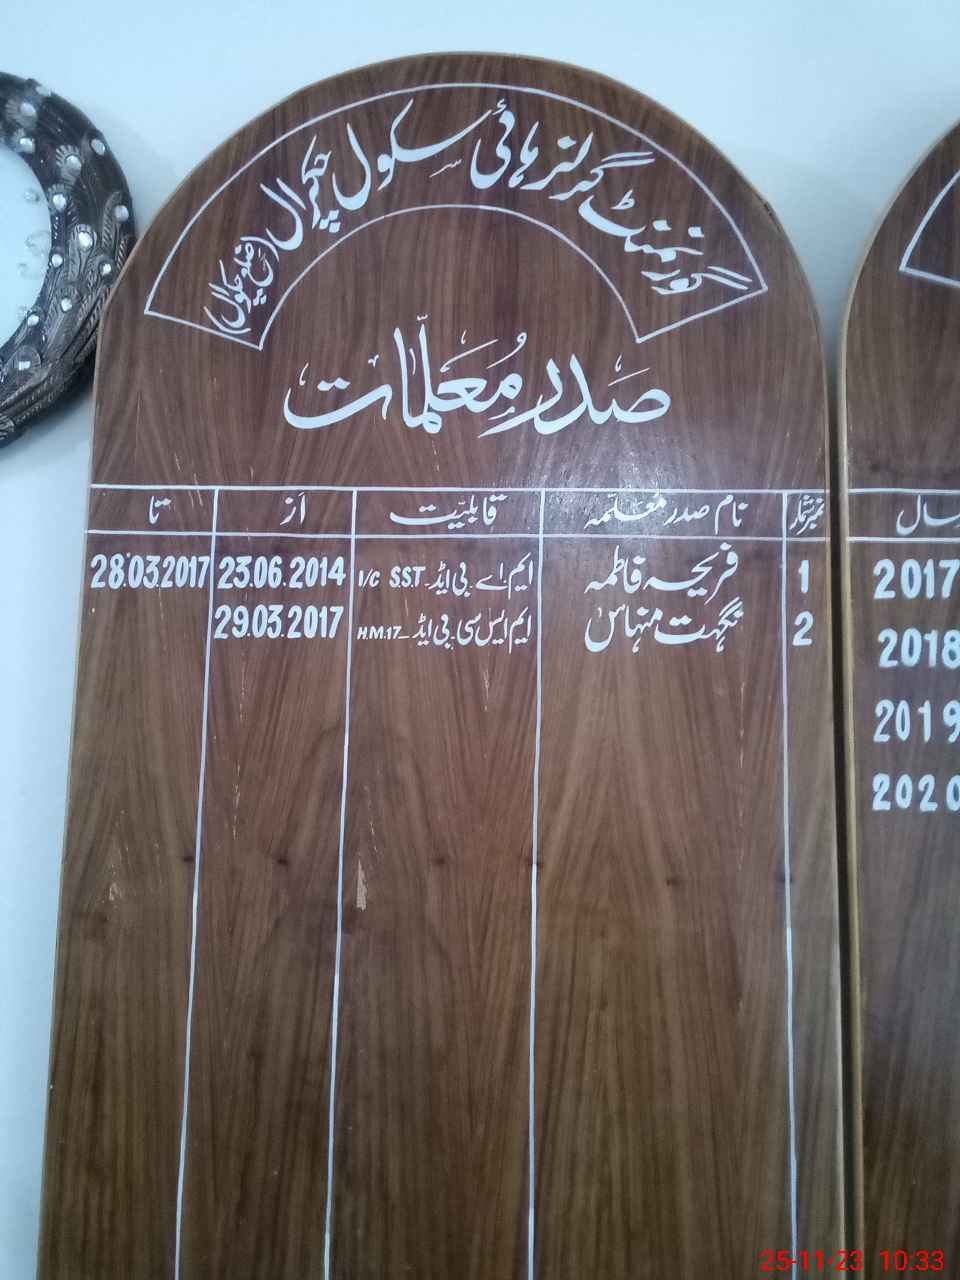 گورنمنٹ گرلز ہائی سکول چترال (ضلع چکوال)
صدر مُعلّمات
نمبر شمار نام صدر معلّمہ قابلیّت اَز تا
1 فریحہ فاطمہ ایم اے ۔ بی ایڈ ۔ SST. I/C 23.06.2014 28.03.2017
2 نگہت منہاس ایم ایس سی ۔ بی ایڈ ۔ H.M.17 29.03.2017
سال
2017
2018
2019
2020
25-11-23 10:33